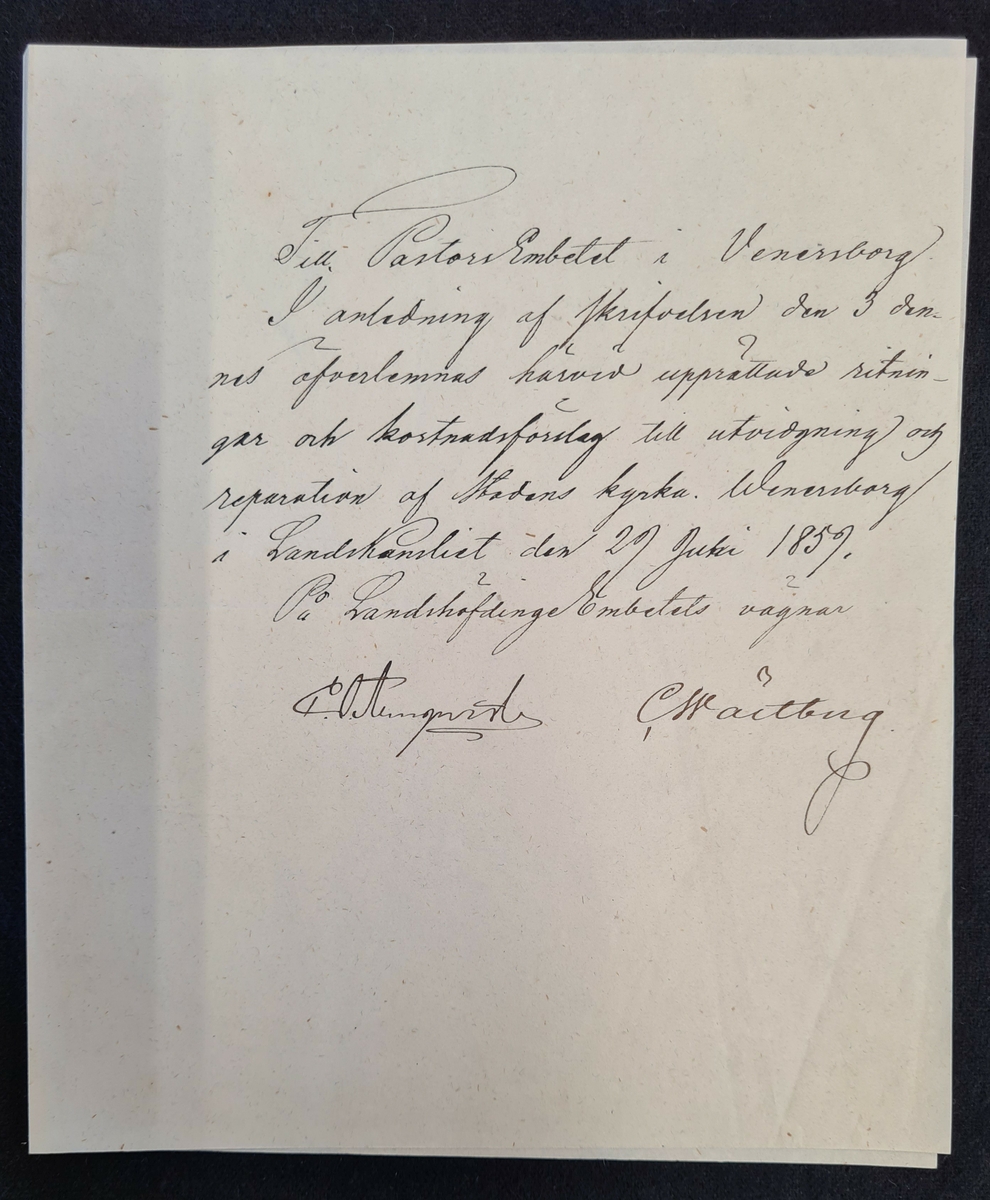 Till PastorsEmbetet i Venersborg
I anledning af skrifvelsen den 3 den-
nes öfverlemnas härvid upprättade ritnin-
gar och kostnadsförslag till utvidgning och
reparation af Stadens kyrka. Wenersborg
i Landskansliet den 29 Juli 1859.
På LandshöfdingeEmbetets vägnar